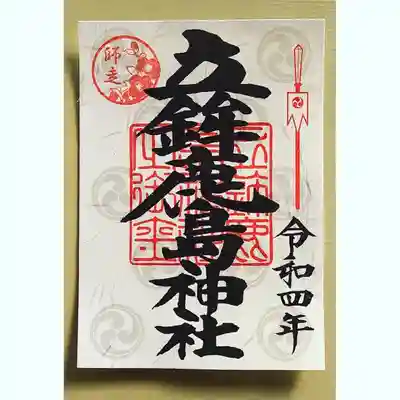 令和四年
立鉾鹿島神社
師走